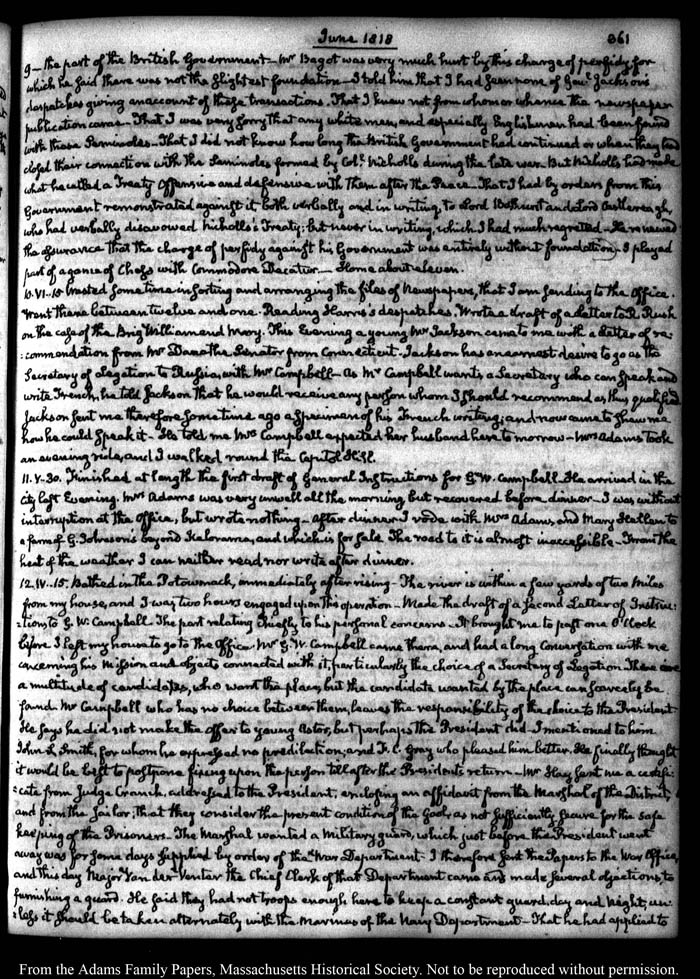 June 1818
361
9— the part of the British Government— Mr Bagot was very much hurt by this charge of perfidy for
which he said there was not the slightest foundation— I told him that I had seen none of Genl. Jackson's
despatches giving an account of these transactions. That I knew not from whom or whence the newspaper
publication came— That I was very sorry that any white men, and especially Englishmen had been found
with those Seminoles— That I did not know how long the British Government had continued or when they had
closed their connection with the Seminoles formed by Coll. Nicholls during the late war. But Nicholls had made
what he called a Treaty Offensive and defensive with them after the Peace— That I had by orders from this
Government remonstrated against it, both verbally and in writing, to Lord Bathurst and Lord Castlereagh,
who had verbally disavowed Nicholls's Treaty; but never in writing, which I had much regretted— He renewed
the assurance that the charge of perfidy against his Government was entirely without foundation— I played
part of a game of Chess with Commodore Decatur— Home about eleven.
10. VI. Wasted some time in sorting and arranging the files of Newspapers, that I am sending to the Office.
Went there between twelve and one. Reading Harris's despatches. Wrote a draft of a letter to R. Rush
on the case of the Brig William and Mary. This Evening a young Mr Jackson came to me with a letter of re:
:commendation from Mr Dana the Senator from Connecticut. Jackson has an earnest desire to go as the
Secretary of Legation to Russia, with Mr Campbell— As Mr Campbell wants a Secretary who can speak and
write French, he told Jackson that he would receive any person whom I should recommend as thus qualified
Jackson sent me therefore some time ago a specimen of his French writing, and now came to shew me
how he could speak it— He told me Mrs Campbell expected her husband here to-morrow— Mrs Adams took
an evening ride, and I walked round the Capitol Hill.
11. V:30. Finished at length the first draft of General Instructions for G. W. Campbell. He arrived in the
city last Evening. Mrs Adams was very unwell all the morning, but recovered before dinner— I was without
interruption at the Office, but wrote nothing— After dinner I rode with Mrs Adams, and Mary Hellen to
a farm of G. Johnson's beyond Kalorama, and which is for sale. The road to it is almost inaccessible— From the
heat of the weather I can neither read nor write after dinner.
12. IV:15. Bathed in the Potowmack, immediately after rising— The river is within a few yards of two miles
from my house, and I was two hours engaged upon this operation— Made the draft of a second Letter of Instruc:
:tions to G. W. Campbell. The part relating chiefly to his personal concerns— It brought me to past one O'Clock
before I left my house to go to the Office. Mr G. W. Campbell came there, and had a long Conversation with me
concerning his Mission and objects connected with it, particularly the choice of a Secretary of Legation. There are
a multitude of candidates, who want the place, but the candidate wanted by the place can scarcely be
found. Mr Campbell who has no choice between them, leaves the responsibility of the choice to the President
He says he did not make the offer to young Astor, but perhaps the President did. I mentioned to him
John S. Smith, for whom he expressed no predilection; and F. C. Gray who pleased him better. He finally thought
it would be best to postpone fixing upon the person till after the President's return— Mr Hay sent me a certifi:
:cate from Judge Cranch, addressed to the President, enclosing an affidavit from the Marshal of the District,
and from the Jailor; that they consider the present condition of the Gaol, as not sufficiently secure for the safe
keeping of the Prisoners— The Marshal wanted a Military guard, which just before the President went
away was for some days supplied by order of the War Department— I therefore sent the Papers to the War Office,
and this day Major Van de Venter the Chief Clerk of that Department came and made several objections, to
furnishing a guard. He said they had not troops enough here to keep a constant guard, day and night, un:
:less it should be taken alternately with the Marines of the Navy Department— That he had applied to
From the Adams Family Papers, Massachusetts Historical Society. Not to be reproduced without permission.